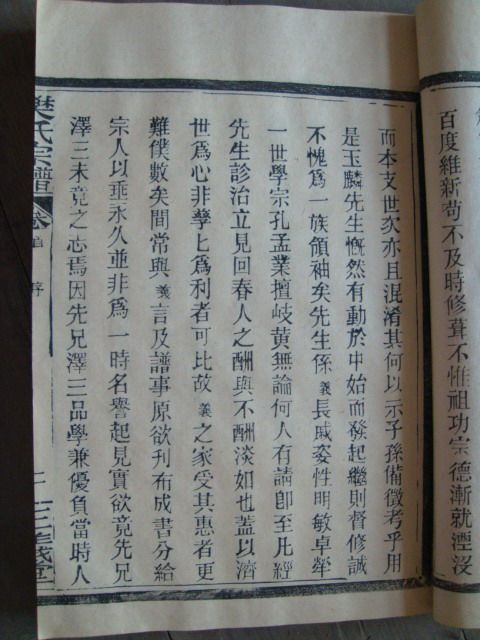 百度維新苟不及時修葺不惟祖功宗德漸就湮沒
而本支世次亦且混淆其何以示子孫備徵考乎用
是玉麟先生慨然有動於中始而發起繼則督修誠
不愧爲一族領袖矣先生係義長戚姿性明敏卓犖
一世學宗孔孟業擅岐黃無論何人有請卽至凡經
先生診治立見回春人之酬與不酬淡如也蓋以濟
世爲心非孳孳爲利者可比故義之家受其惠者更
難僕數矣間常與義言及譜事原欲刋布成書分給
宗人以垂永久並非爲一時名譽起見實欲竟先兄
澤三未竟之志焉因先兄澤三品學兼優負當時人
樊氏宗譜
卷首
序
二
三善堂